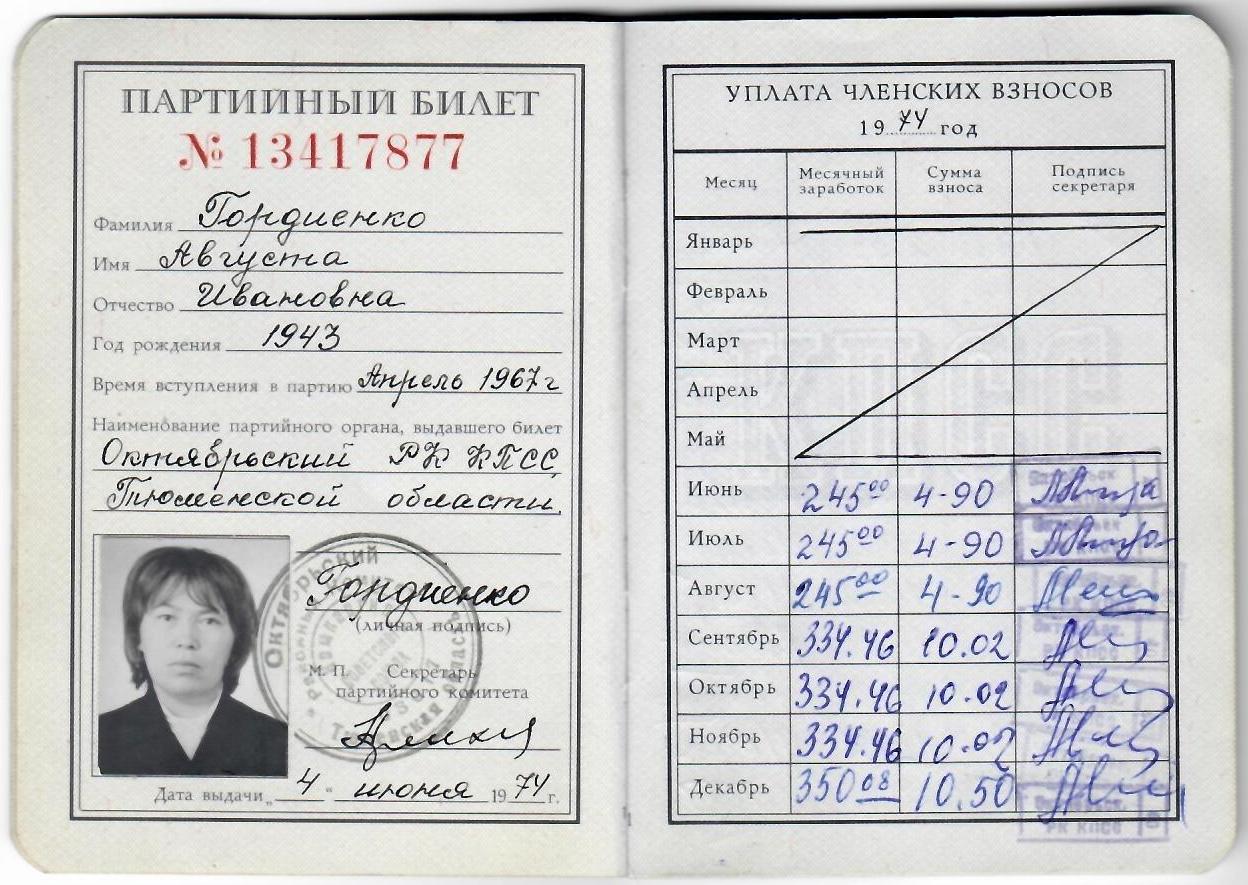 ПАРТИЙНЫЙ БИЛЕТ
№ 13417877
Фамилия Гордиенко
Имя Августа
Отчество Ивановна
Год рождения 1943
Время вступления в партию Апрель 1967 г
Наименование партийного органа, выдавшего билет
Октябрьский РК КПСС,
Тюменской области.
Гордиенко
(личная подпись)
М. П. Секретарь
партийного комитета
Дата выдачи „4“ июня 1974 г.
УПЛАТА ЧЛЕНСКИХ ВЗНОСОВ
1974 год
Месяц Месячный заработок Сумма взноса Подпись секретаря
Январь
Февраль
Март
Апрель
Май
Июнь 245 00 4-90
Июль 245 00 4-90
Август 245 00 4-90
Сентябрь 334.46 10.02
Октябрь 334.46 10.02
Ноябрь 334.46 10-02
Декабрь 350 08 10.50
РК КПСС